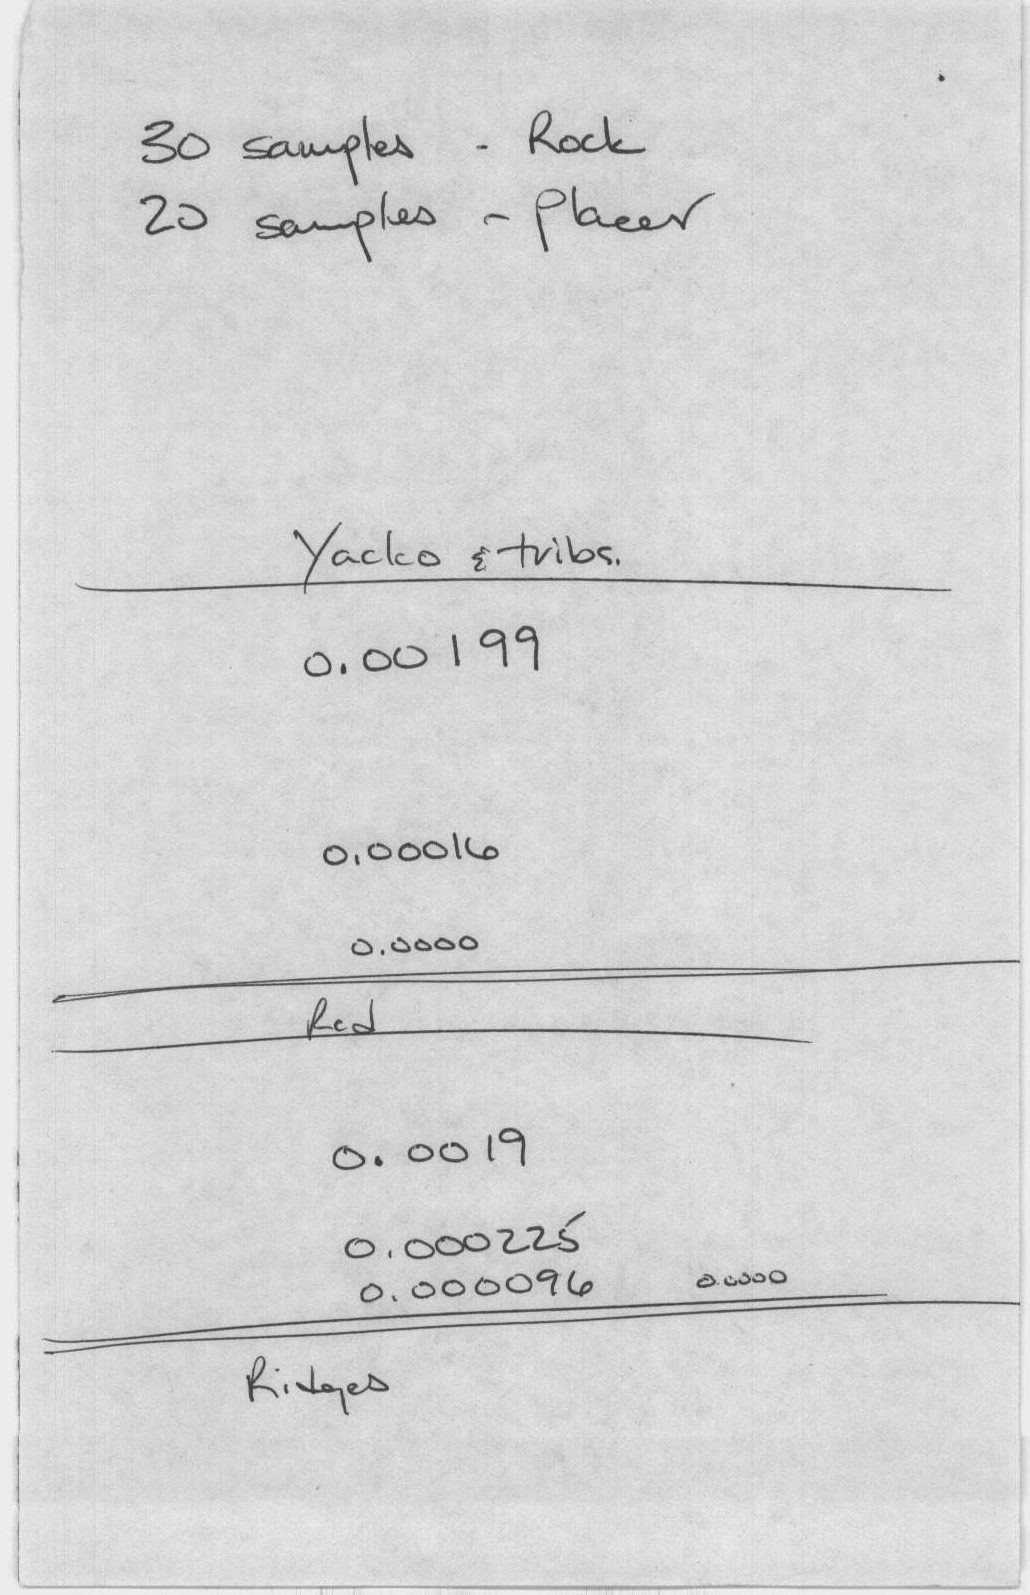 30 samples - Rock
20 samples - Placer
Yacko & tribs.
0.00199
0.00016
0.0000
Red
0.0019
0.000225
0.000096 0.0000
Ridges